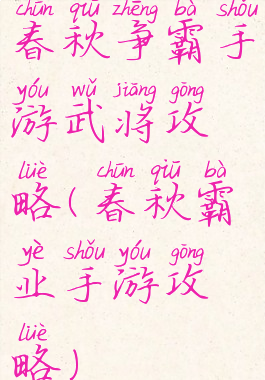 chūn qiū zhēng bà shǒu
春秋争霸手
yóu wǔ jiāng gōng
游武将攻
lüè chūn qiū bà
略(春秋霸
yè shǒu yóu gōng
业手游攻
lüè
略)